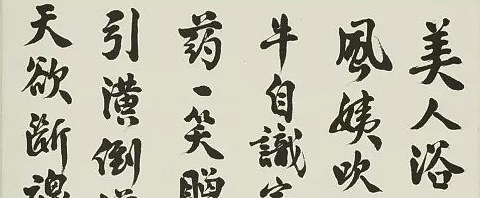 美人浴
風姨吹
牛自識
药一笑贈
引潢倒
天欲斷魂